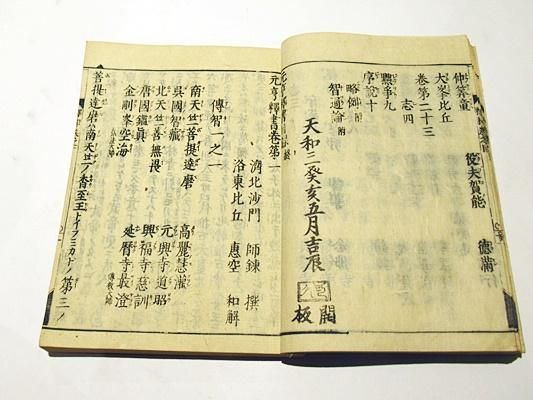 仲算童
大峯比丘　役夫賀能　德蒲行
卷第二十三
志四
黜爭九
序說十
略例附
智通論附
天和三癸亥五月吉辰
開板
元亨釋書卷第一
濟北沙門　師錬　撰
洛東比丘　惠空　和解
傳智一之一
南天竺菩提達磨　高麗慧灌
吳國智藏　元興寺道昭
北天竺善無畏　興福寺慈訓
唐國鑑眞　延曆寺最澄
金剛峯空海
菩提達磨ハ南天竺ノ香至王トイフミカドノ第三ノ